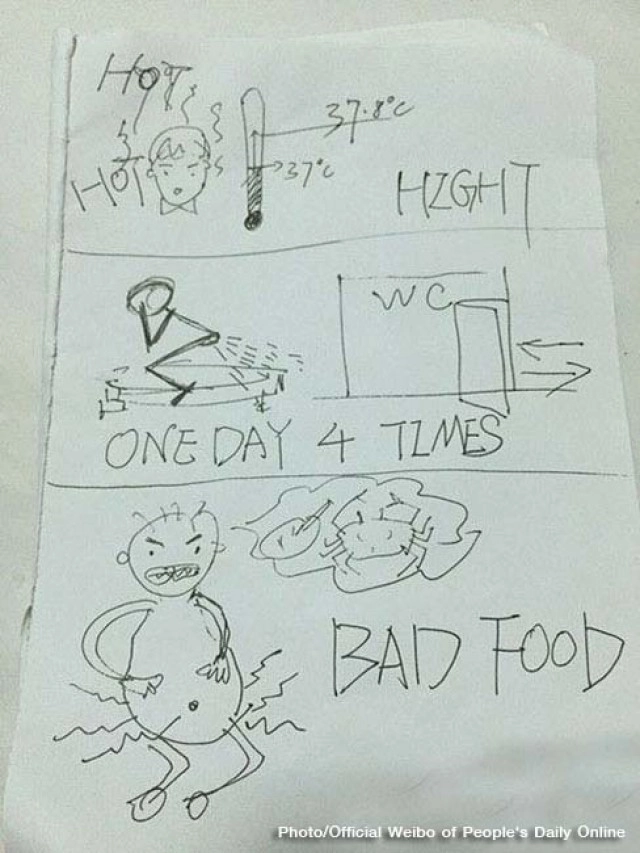 HOT
37.8°C
37°C
HOT
HIGHT
WC
ONE DAY 4 TIMES
BAD FOOD
Photo/Official Weibo of People's Daily Online